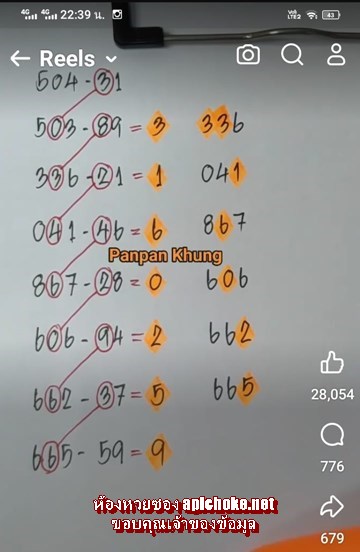 4G 4G 22:39 น. VoLTE2 43
Reels
504-31
503-89=3 336
336-21=1 041
041-46=6 867
Panpan Khung
867-28=0 606
606-94=2 662
28,054
662-37=5 665
776
665-59=9
ห้องหวยซอง apichoke.net
ขอบคุณเจ้าของข้อมูล
679